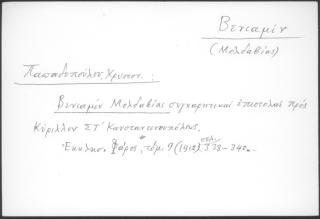 Βενιαμίν
(Μολδαβίας)
Παπαδοπούλου, Χρυσοσ. :
Βενιαμίν Μολδαβίας συγχαρητικαί ἐπιστολαί πρός
Κύριλλον ΣΤ´ Κωνσταντινουπόλεως,
Ἐκκλησ. Φάρος, τόμ. 9 (1912) σελ. 338-340.